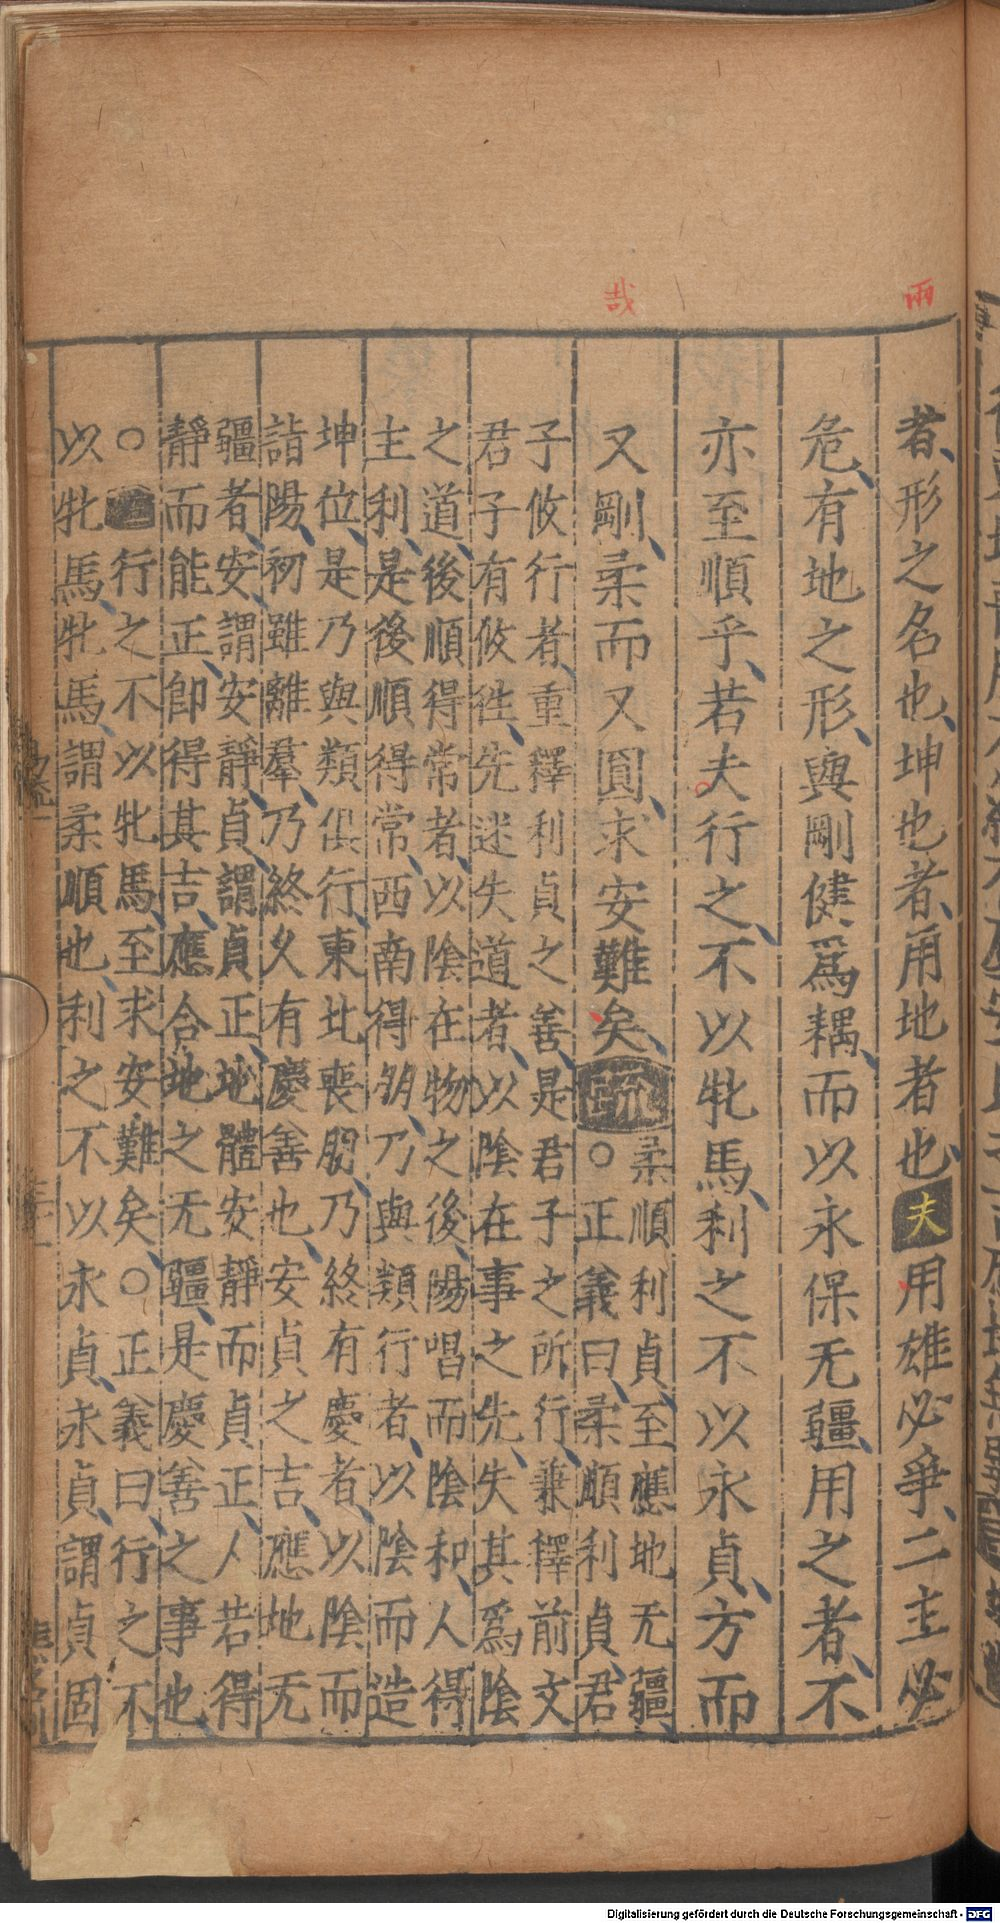 雨
哉
者形之名也坤也者用地者也夫用雄必爭二主必
危有地之形與剛健爲耦而以永保无疆用之者不
亦至順乎若夫行之不以牝馬利之不以永貞方而
又剛柔而又圓求安難矣疏
柔順利貞至應地无疆
○正義曰柔順利貞君
子攸行者重釋利貞之善是君子之所行兼釋前文
君子有攸往先迷失道者以陰在事之先失其爲陰
之道後順得常者以陰在物之後陽唱而陰和人得
主利是後順得常西南得朋乃與類行者以陰而造
坤位是乃與類俱行東北喪朋乃終有慶者以陰而
詣陽初雖離羣乃終久有慶善也安貞之吉應地无
疆者安謂安靜貞謂貞正地體安靜而貞正人若得
靜而能正即得其吉應合地之无疆是慶善之事也
○行之不以牝馬至求安難矣○正義曰行之不
以牝馬牝馬謂柔順也利之不以永貞永貞謂貞固
Digitalisierung gefördert durch die Deutsche Forschungsgemeinschaft - DFG